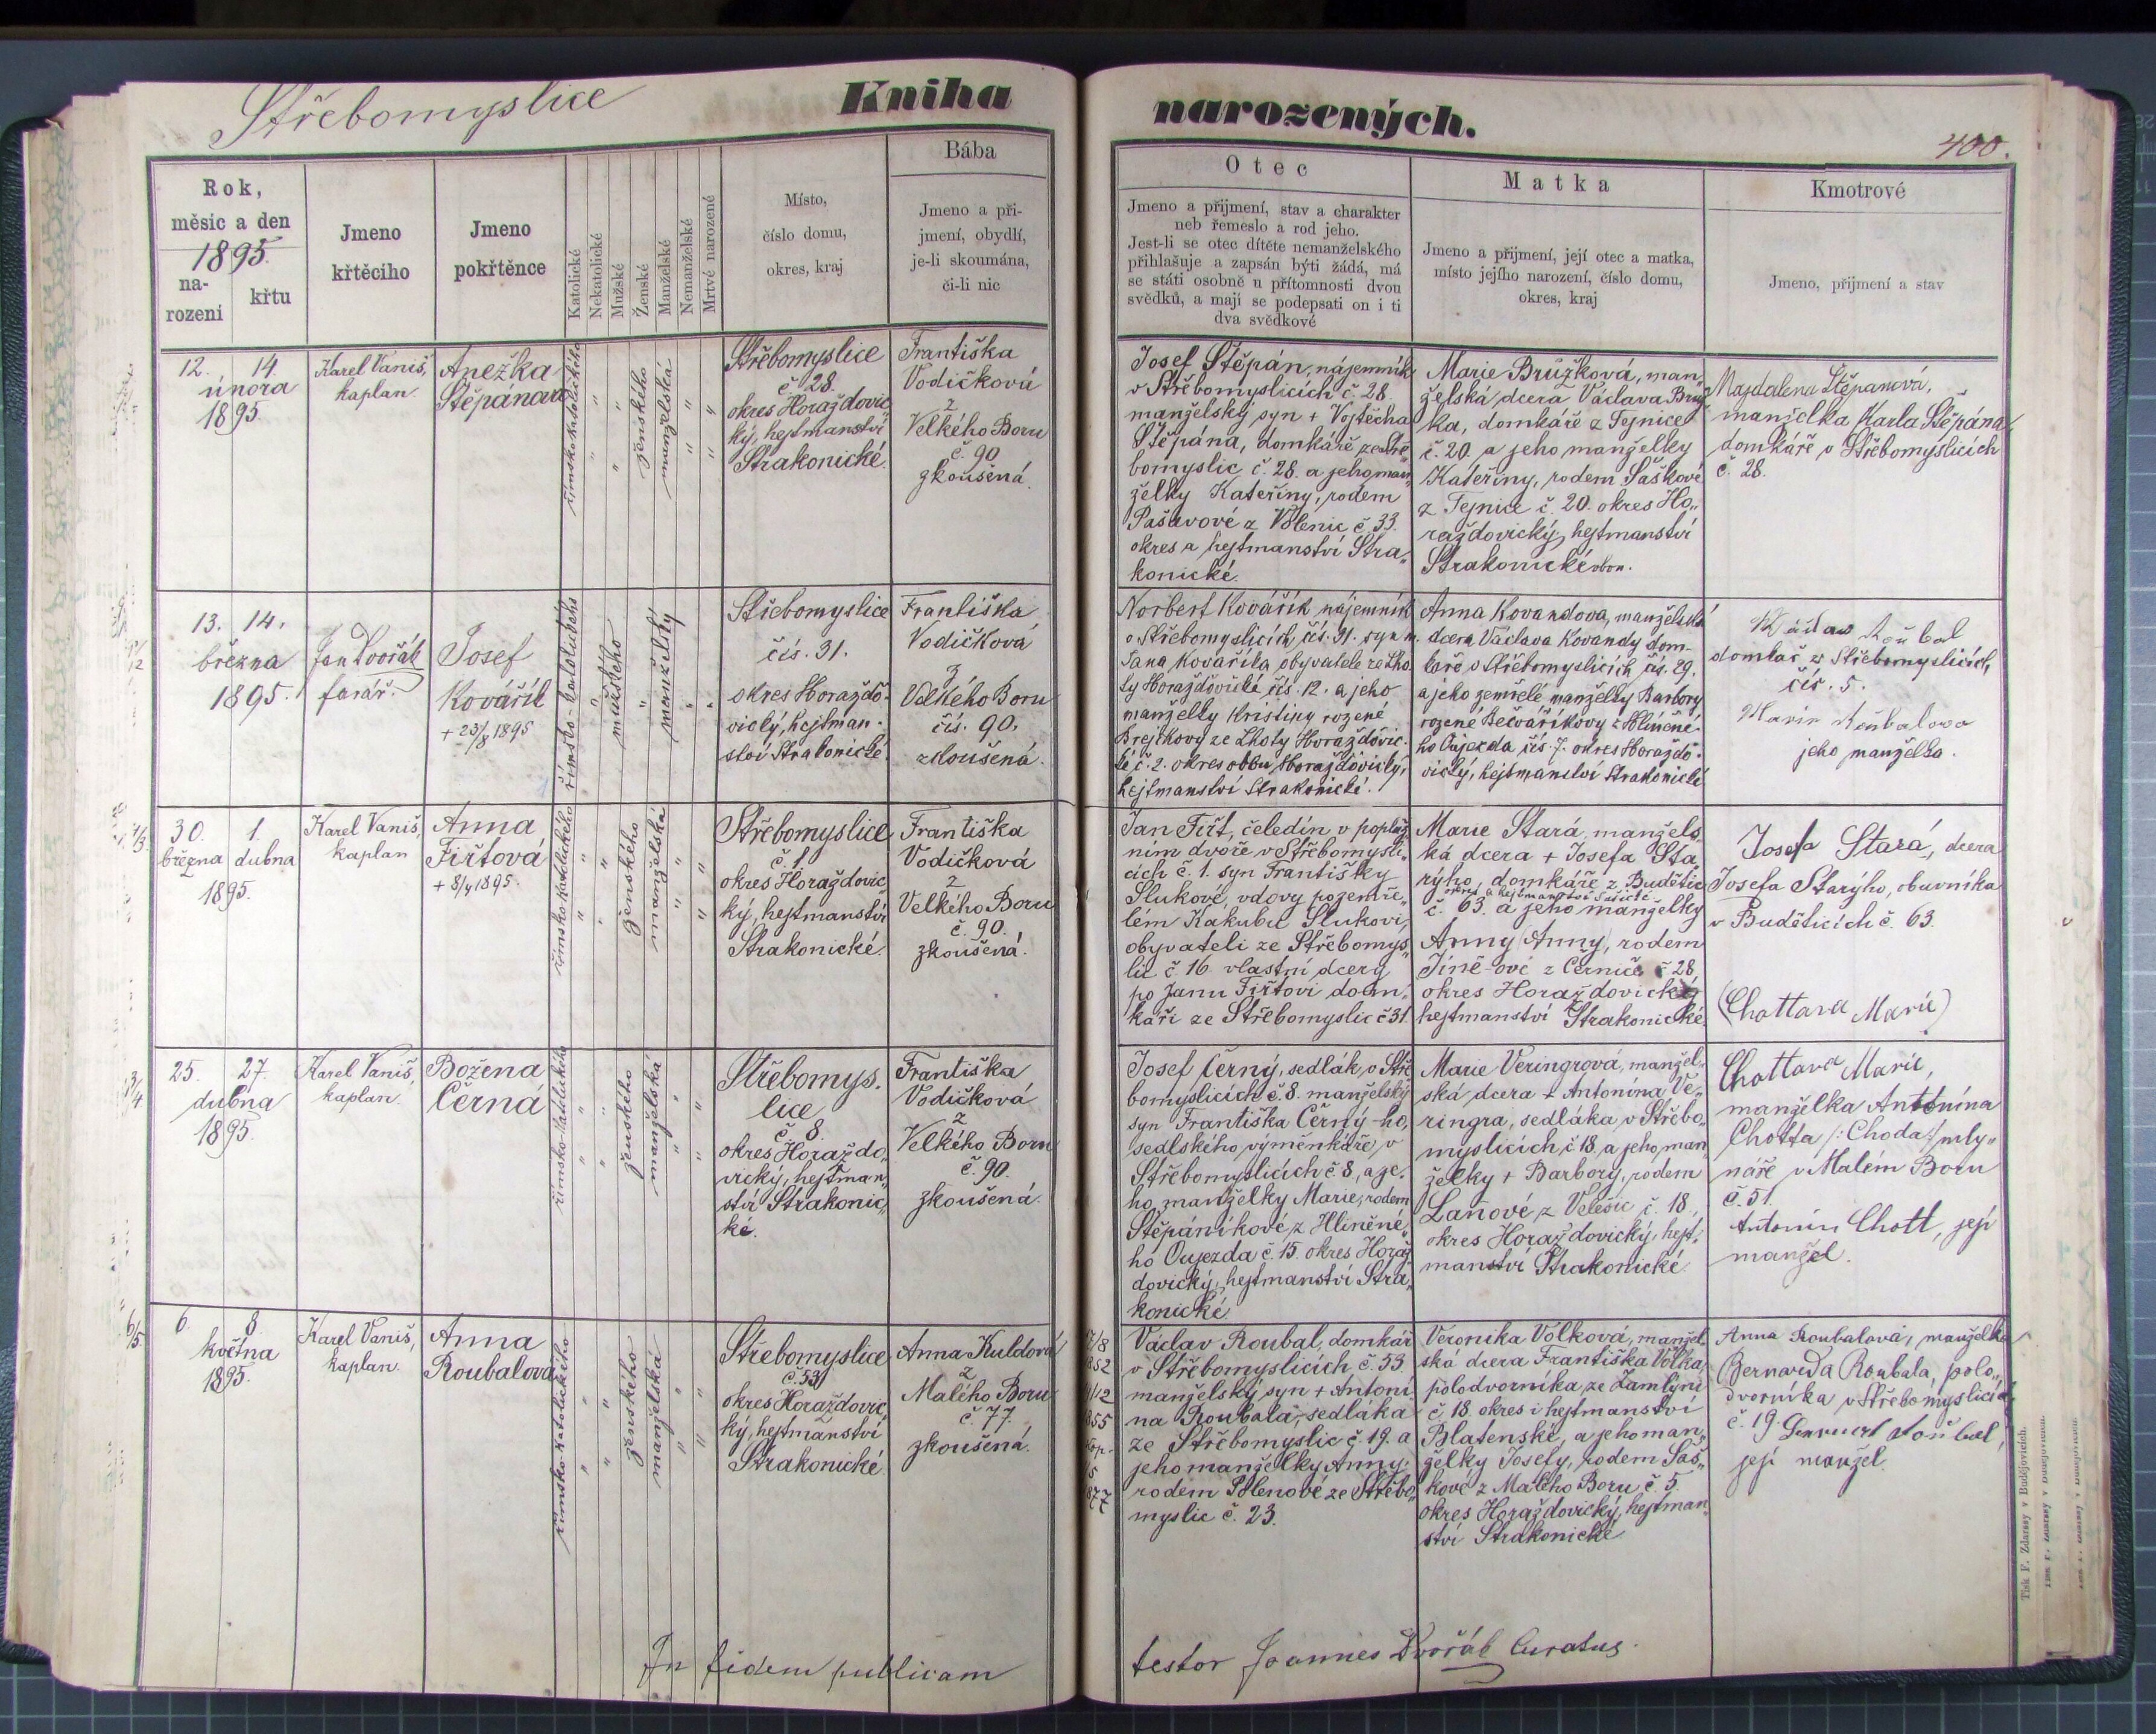 Střebomyslice
Kniha
narozených.
400.
Rok,
měsíc a den
1895.
na-
rození
křtu
Jmeno
křtěcího
Jmeno
pokřtěnce
Katolické
Nekatolické
Mužské
Ženské
Manželské
Nemanželské
Mrtvé narozené
Místo,
číslo domu,
okres, kraj
Bába
Jmeno a při-
jmení, obydlí,
je-li skoumána,
či-li nic
Otec
Jmeno a přijmení, stav a charakter
neb řemeslo a rod jeho.
Jest-li se otec dítěte nemanželského
přihlašuje a zapsán býti žádá, má
se státi osobně u přítomnosti dvou
svědků, a mají se podepsati on i ti
dva svědkové
Matka
Jmeno a přijmení, její otec a matka,
místo jejího narození, číslo domu,
okres, kraj
Kmotrové
Jmeno, přijmení a stav
12. 14.
února
1895.
Karel Vaniš,
kaplan.
Anežka
Štěpánova
římsko katolického
ženského
manželská
Střebomyslice
č 28.
okres Horaždovic„
ký, hejtmanství
Strakonické.
Františka
Vodičková
z
Velkého Boru
č. 90
zkoušená.
Josef Štěpán, nájemník
v Střebomyslicích č. 28.
manželský syn + Vojtěcha
Štěpána, domkáře ze Stře„
bomyslic č. 28. a jeho man„
želky Kateřiny, rodem
Pašavové z Volenic č. 33.
okres a hejtmanství Stra„
konické.
Marie Brůžková, man„
želská dcera Václava Brůž
ka, domkáře z Tejnice
č. 20. a jeho manželky
Kateřiny, rodem Šaškové
z Tejnice č. 20. okres Ho„
raždovický, hejtmanství
Strakonické
Majdalena Štěpanová,
manželka Karla Štěpána
domkáře v Střebomyslicích
č. 28.
13. 14.
března
1895.
Jan Dvořák
farář.
Josef
Kovářík
+ 23/8 1895
římsko katolického
mužského
manželský
Střebomyslice
čís. 31.
okres Horaždo-
vický, hejtman-
ství Strakonické.
Františka
Vodičková
z
Velkého Boru
čís. 90.
zkoušená.
Norbert Kovářík nájemník
v Střebomyslicích čís. 31. syn m.
Jana Kovaříka obyvatele ze Lho-
ty Horažďovické čís. 12. a jeho
manželky Kristiny rozené
Brejchovy ze Lhoty Horaždovic-
ké č. 2. okres obou Horažďovický,
hejtmanství Strakonické.
Anna Kovandova, manželská
dcera Václava Kovandy dom-
káře v Střebomyslicích čís. 29.
a jeho zemřelé manželky Barbory
rozené Bečvaříkovy z Hliněné-
ho Oujezda čís. 7. okres Horaždo-
vický, hejtmanství Strakonické
Václav Roubal
domkař v Střebomyslicích,
čís. 5.
Marie Roubalova
jeho manželka.
30. 1.
března dubna
1895.
Karel Vaniš,
kaplan
Anna
Fiřtová
+ 8/4 1895.
římsko katolického
ženského
manželská
Střebomyslice
č. 1.
okres Horaždovic„
ký, hejtmanství
Strakonické.
Františka
Vodičková
z
Velkého Boru
č. 90.
zkoušená.
Jan Fiřt, čeledín v poplaž
ním dvoře v Střebomysli„
cích č. 1. syn Františky
Slukové, vdovy po zemře„
lém Jakubu Slukovi,
obyvateli ze Střebomys„
lic č. 16 vlastní dcery
po Janu Fiřtovi dom„
káři ze Střebomyslic č 31
Marie Stará, manžels„
ká dcera + Josefa Sta„
rýho, domkáře z Budětic
okres a hejtmanství Sušické
č. 63. a jeho manželky
Anny (Anny), rodem
Jíně-ové z Černíče č 28,
okres Horaždovický
hejtmanství Strakonické.
Josefa Stará, dcera
Josefa Starýho, obuvníka
v Budětících č. 63.
(Chottova Marie)
25. 27.
dubna
1895.
Karel Vaniš,
kaplan.
Božena
Černá
římsko-katolického
ženského
manželská
Střebomys„
lice
č 8.
okres Horaždo„
vický, hejtman„
ství Strakonic„
ké.
Františka
Vodičková
z
Velkého Boru
č. 90.
zkoušená.
Josef Černý, sedlák v Stře
bomyslicích č. 8. manželský
syn Františka Černý-ho,
sedlského výměnkáře, v
Střebomyslicích č 8, a je„
ho manželky Marie, rodem
Štěpáníkové z Hliněné„
ho Oujezda č. 15. okres Horaž
dovický, hejtmanství Stra„
konické
Marie Veringrová, manžel„
ská dcera + Antonína Ve„
ringra, sedláka v Střebo„
myslicích č 18, a jeho man
želky + Barbory, rodem
Laňové z Velešic č. 18,
okres Horaždovický, hejt„
manství Strakonické.
Chottova Marie,
manželka Antonína
Chotta /: Choda :/ mly„
náře v Malém Boru
č. 51.
Antonín Chott, její
manžel.
6. 8.
května
1895.
Karel Vaniš,
kaplan.
Anna
Roubalová
římsko-katolického
ženského
manželská
Střebomyslice
č. 53
okres Horaždovic„
ký, hejtmanství
Strakonické
Anna Kuldová
z
Malého Boru
č. 77.
zkoušená.
Václav Roubal, domkář
v Střebomyslicích č. 53
manželský syn + Antoní
na Roubala, sedláka
ze Střebomyslic č. 19. a
jeho manželky Anny,
rodem Polenové ze Střebo„
myslic č. 23.
Veronika Volková, manžel
ská dcera Františka Volka,
polodvorníka ze Zamlýní
č. 18. okres i hejtmanství
Blatenské, a jeho man„
želky Josefy, rodem Šaš„
kové z Malého Boru č. 5.
okres Horaždovický, hejtman„
ství Strakonické
Anna Roubalová, manželka
Bernarda Roubala, polo„
dvorníka v Střebomyslicích
č. 19.
její manžel.
In fidem publicam
testor Joannes Dvořák Curatus.
Tisk F. Zdarssy v Budějovicích.